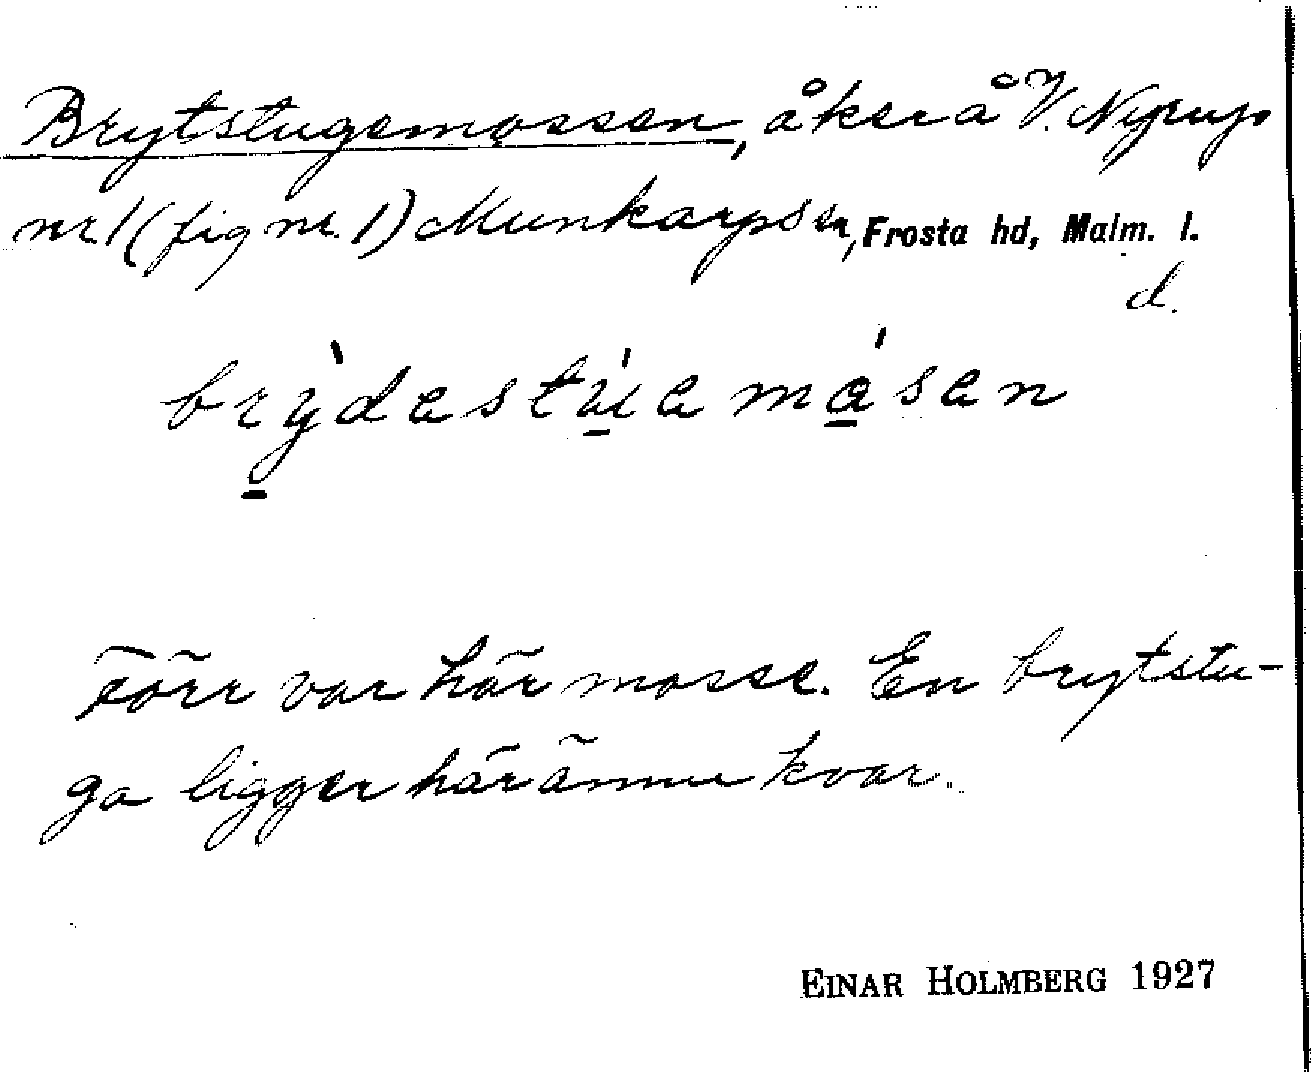 Brytstugemossen, åker å V. Nyrup
nr 1 (fig nr. 1) Munkarps sn, Frosta hd, Malm. l.
d.
brydestúemåsen
Förr var här mosse. En brytstu-
ga ligger här ännu kvar.
EINAR HOLMBERG 1927